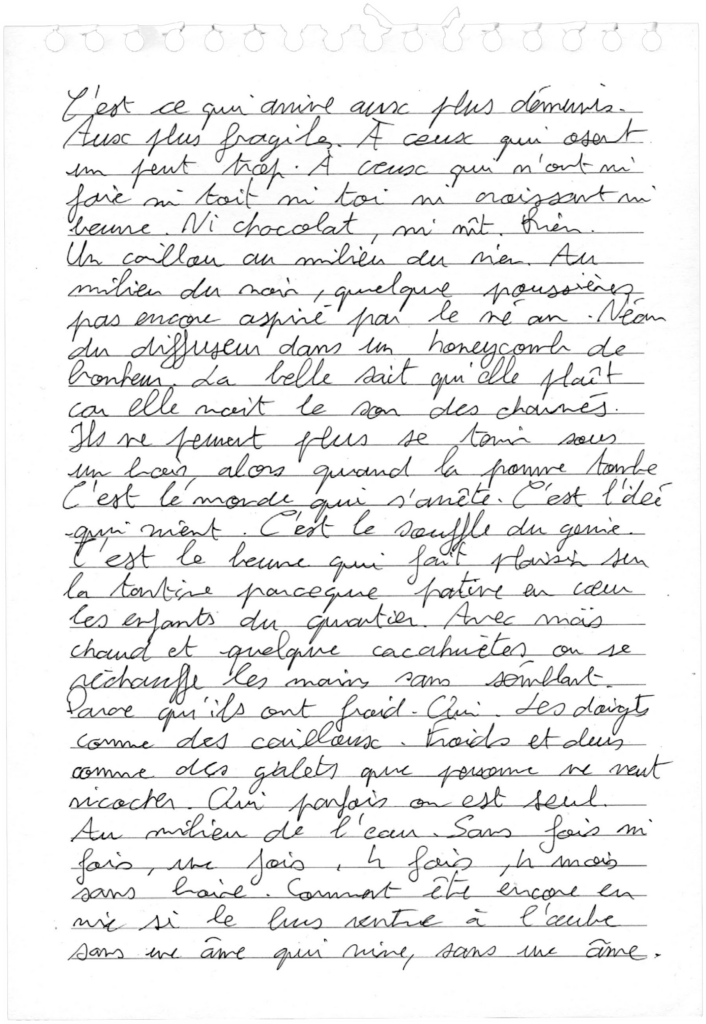 C'est ce qui arrive aux plus démunis.
Aux plus fragiles. À ceux qui osent
un peut trop. À ceux qui n'ont ni
foie ni toit ni toi ni croissant ni
beurre. Ni chocolat, ni nît. Rien.
Un caillou au milieu du rien. Au
milieu du noir, quelque poussières
pas encore aspiré par le né an. Néan
du diffuseur dans un honeycomb de
bonheur. La belle sait qu'elle plaît
car elle noit le son des charnés.
Ils ne peuvent plus se tenir sous
un bois, alors quand la pomme tombe
C'est le monde qui s'arrête. C'est l'idée
qui vient. C'est le souffle du genie.
C'est le beurre qui fait plaisir sur
la tartine parceque patine en cœur
les enfants du quartier. Avec maïs
chaud et quelque cacahuètes on se
réchauffe les mains sans semblant.
Parce qu'ils ont froid. Oui. Les doigts
comme des cailloux. Froids et durs
comme des galets que personne ne veut
ricocher. Oui parfois on est seul.
Au milieu de l'eau. Sans fois ni
fois, une fois, 4 fois, 4 mois
sans boire. Comment être encore en
vie si le bus rentre à l'aube
sans une âme qui vive, sans une âme.